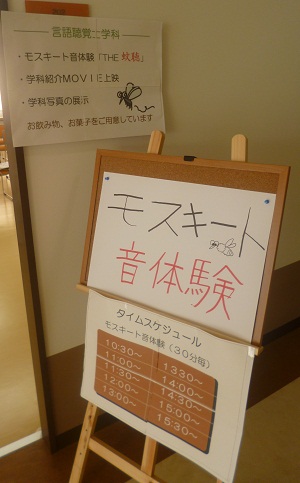 言語聴覚士学科
・モスキート音体験「THE 蚊聴」
・学科紹介MOVIE上映
・学科写真の展示
お飲み物、お菓子をご用意しています
モスキート
音体験
タイムスケジュール
モスキート音体験(30分毎)
10:30~
11:00~
11:30~
12:00~
13:00~
1330~
14:00~
14:30~
15:00~
15:30~